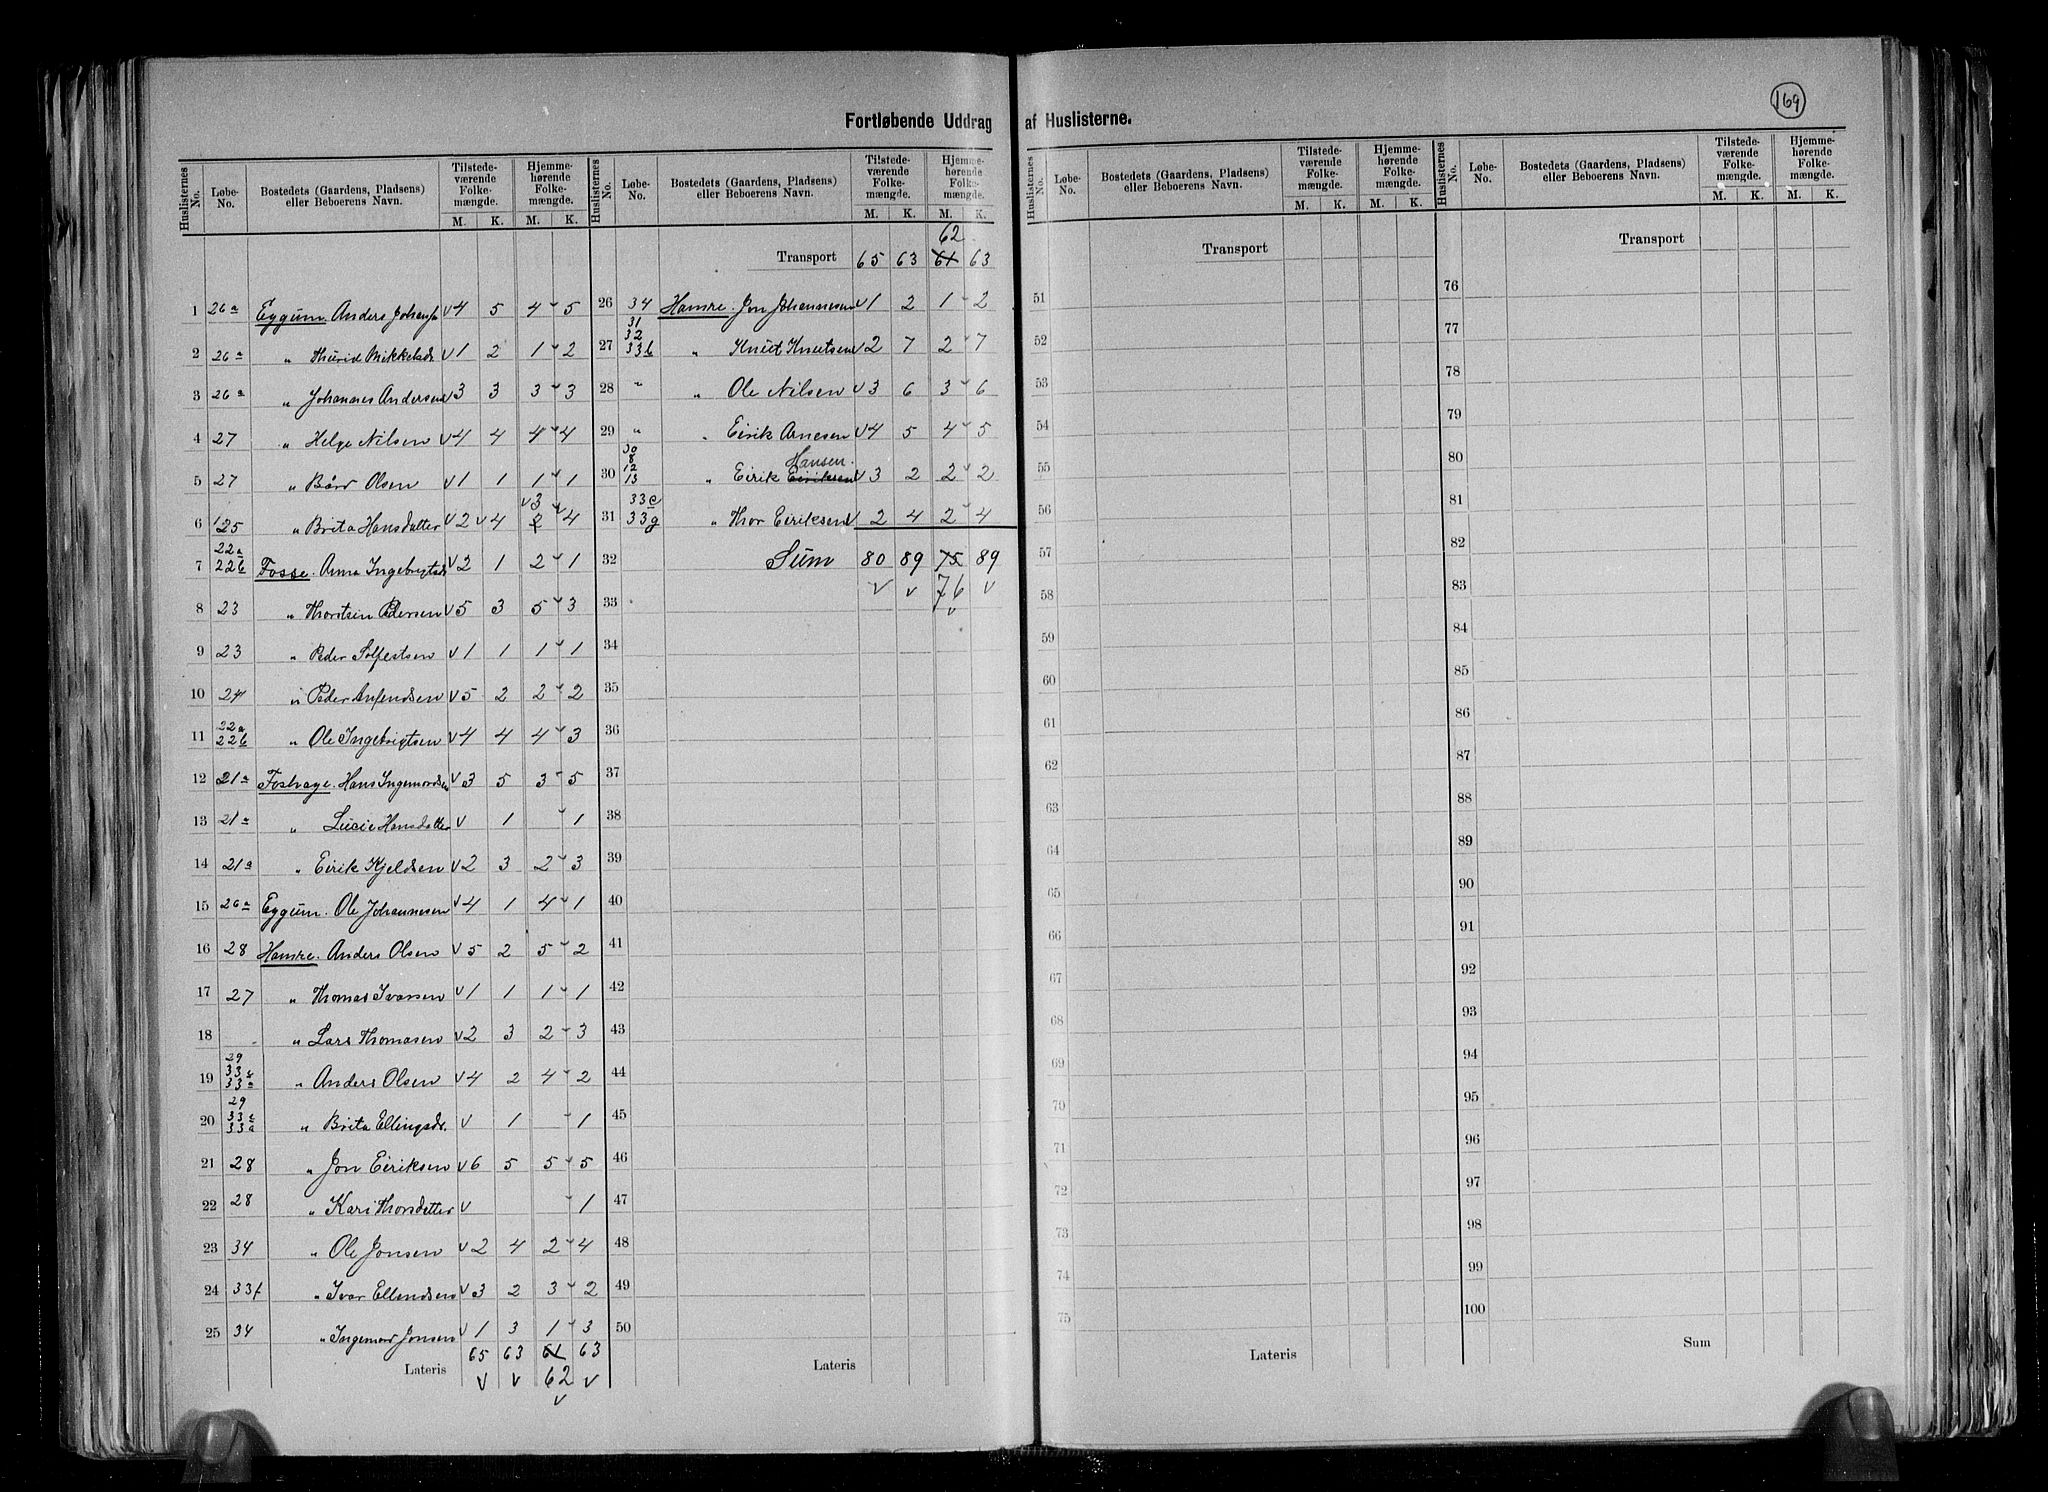 169
Fortløbende Uddrag af Huslisterne.
Huslisternes No. Løbe-No. Bostedets (Gaardens, Pladsens) eller Beboerens Navn. Tilstedeværende Folkemængde. M. K. Hjemmehørende Folkemængde. M. K.
1 26a Eygum. Anders Johans 4 5 4 5
2 26a " Thurid Mikkelsdr 1 2 1 2
3 26a " Johannes Andersen 3 3 3 3
4 27 " Helge Nilsen 4 4 4 4
5 27 " Bård Olsen 1 1 1 1
6 125 " Brita Hansdatter 2 4 3 4
7 22a 22b Fosse. Anna Ingebrigtsd 2 1 2 1
8 23 " Thorstein Pedersen 5 3 5 3
9 23 " Peder Solfestsen 1 1 1 1
10 24 " Peder Anfindsen 5 2 2 2
11 22a 22b " Ole Ingebrigtsen 4 4 4 3
12 21a Foshage. Hans Ingemordsen 3 5 3 5
13 21a " Lucie Hansdatter 1 1
14 21a " Eirik Kjeldsen 2 3 2 3
15 26a Eygum. Ole Johannesen 4 1 4 1
16 28 Hamre. Anders Olsen 5 2 5 2
17 27 " Thomas Ivarsen 1 1 1 1
18 " Lars Thomasen 2 3 2 3
19 29 33c 33a " Anders Olsen 4 2 4 2
20 29 33c 33a " Brita Ellingsdr. 1 1
21 28 " Jon Eiriksen 6 5 5 5
22 28 " Kari Thorsdatter 1
23 34 " Ole Jonsen 2 4 2 4
24 33f " Ivar Ellendsen 3 2 3 2
25 34 " Ingemor Jonsen 1 3 1 3
Lateris 65 63 61 63
62
Huslisternes No. Løbe-No. Bostedets (Gaardens, Pladsens) eller Beboerens Navn. Tilstedeværende Folkemængde. M. K. Hjemmehørende Folkemængde. M. K.
62
Transport 65 63 61 63
26 34 Hamre. Jon Johannesen 1 2 1 2
27 31 32 33b " Knut Knutsen 2 7 2 7
28 " " Ole Nilsen 3 6 3 6
29 " " Eirik Arnesen 4 5 4 5
Hansen.
30 30 8 12 13 " Eirik Eiriksen 3 2 2 2
31 33e 33g " Thor Eiriksen 2 4 2 4
32 Sum 80 89 75 89
33 76
34
35
36
37
38
39
40
41
42
43
44
45
46
47
48
49
50
Lateris
Huslisternes No. Løbe-No. Bostedets (Gaardens, Pladsens) eller Beboerens Navn. Tilstedeværende Folkemængde. M. K. Hjemmehørende Folkemængde. M. K.
Transport
51
52
53
54
55
56
57
58
59
60
61
62
63
64
65
66
67
68
69
70
71
72
73
74
75
Lateris
Huslisternes No. Løbe-No. Bostedets (Gaardens, Pladsens) eller Beboerens Navn. Tilstedeværende Folkemængde. M. K. Hjemmehørende Folkemængde. M. K.
Transport
76
77
78
79
80
81
82
83
84
85
86
87
88
89
90
91
92
93
94
95
96
97
98
99
100
Sum